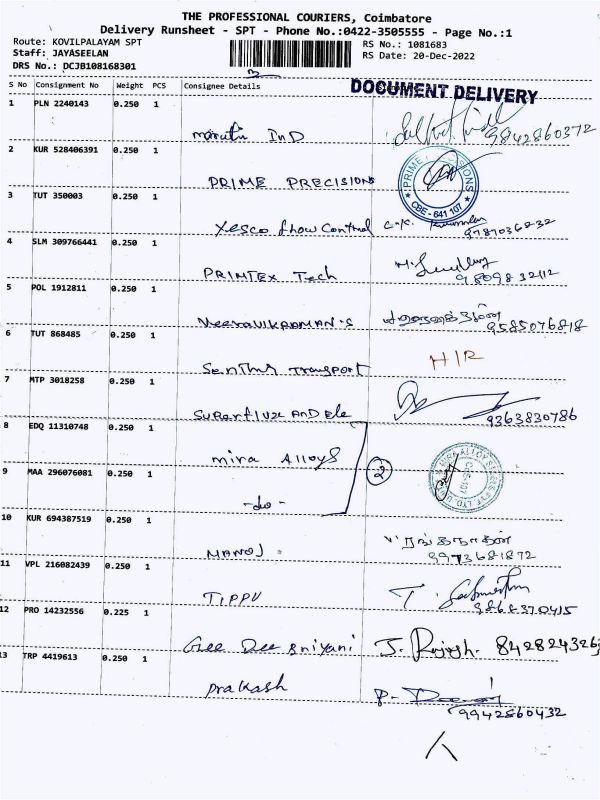 THE PROFESSIONAL COURIERS, Coimbatore
Delivery Runsheet - SPT - Phone No.:0422-3505555 - Page No.:1
Route: KOVILPALAYAM SPT
RS No.: 1081683
Staff: JAYASEELAN
RS Date: 20-Dec-2022
DRS No.: DCJB108168301
S No Consignment No Weight PCS Consignee Details
DOCUMENT DELIVERY
1 PLN 2240143 0.250 1
maruti IND 9842860372
2 KUR 528406391 0.250 1
PRIME PRECISIONS
CBE - 641 107
3 TUT 350003 0.250 1
Xesco flow Control C.K.
4 SLM 309766441 0.250 1
PRIMTEX Tech
5 POL 1912811 0.250 1
9585076818
6 TUT 868485 0.250 1
Senthur Transport
7 MTP 3018258 0.250 1
9363830786
8 EDQ 11310748 0.250 1
mira Alloys
2
9 MAA 296076081 0.250 1
-do-
10 KUR 694387519 0.250 1
MANOJ
9973681872
11 VPL 216082439 0.250 1
TIPPU T.
12 PRO 14232556 0.225 1
J. Rajesh.
13 TRP 4419613 0.250 1
Prakash P.
9942860432